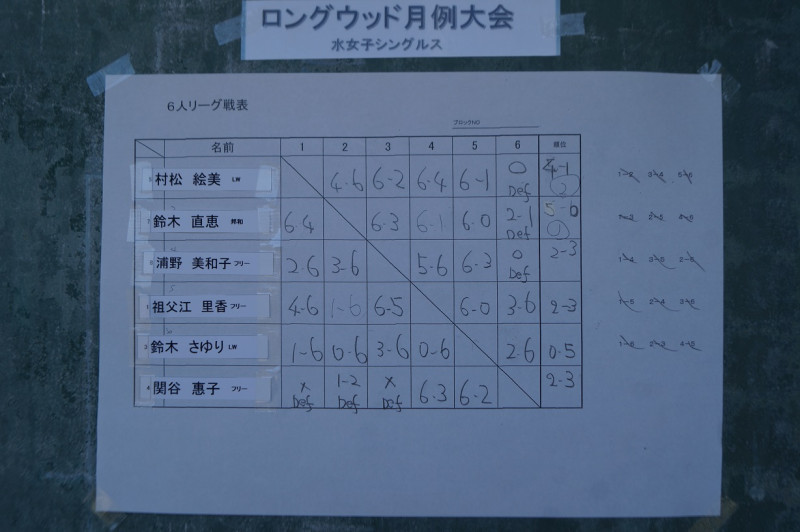 ロングウッド月例大会
水女子シングルス
6人リーグ戦表
ブロックNO
名前 1 2 3 4 5 6 順位
村松 絵美 LW 4-6 6-2 6-4 6-1 0 Def 4-1 2
鈴木 直恵 邦和 6-4 6-3 6-1 6-0 2-1 Def 5-0 1
浦野 美和子 フリー 2-6 3-6 5-6 6-3 0 Def 2-3
祖父江 里香 フリー 4-6 1-6 6-5 6-0 3-6 2-3
鈴木 さゆり LW 1-6 0-6 3-6 0-6 2-6 0-5
関谷 惠子 フリー × Def 1-2 Def × Def 6-3 6-2 2-3